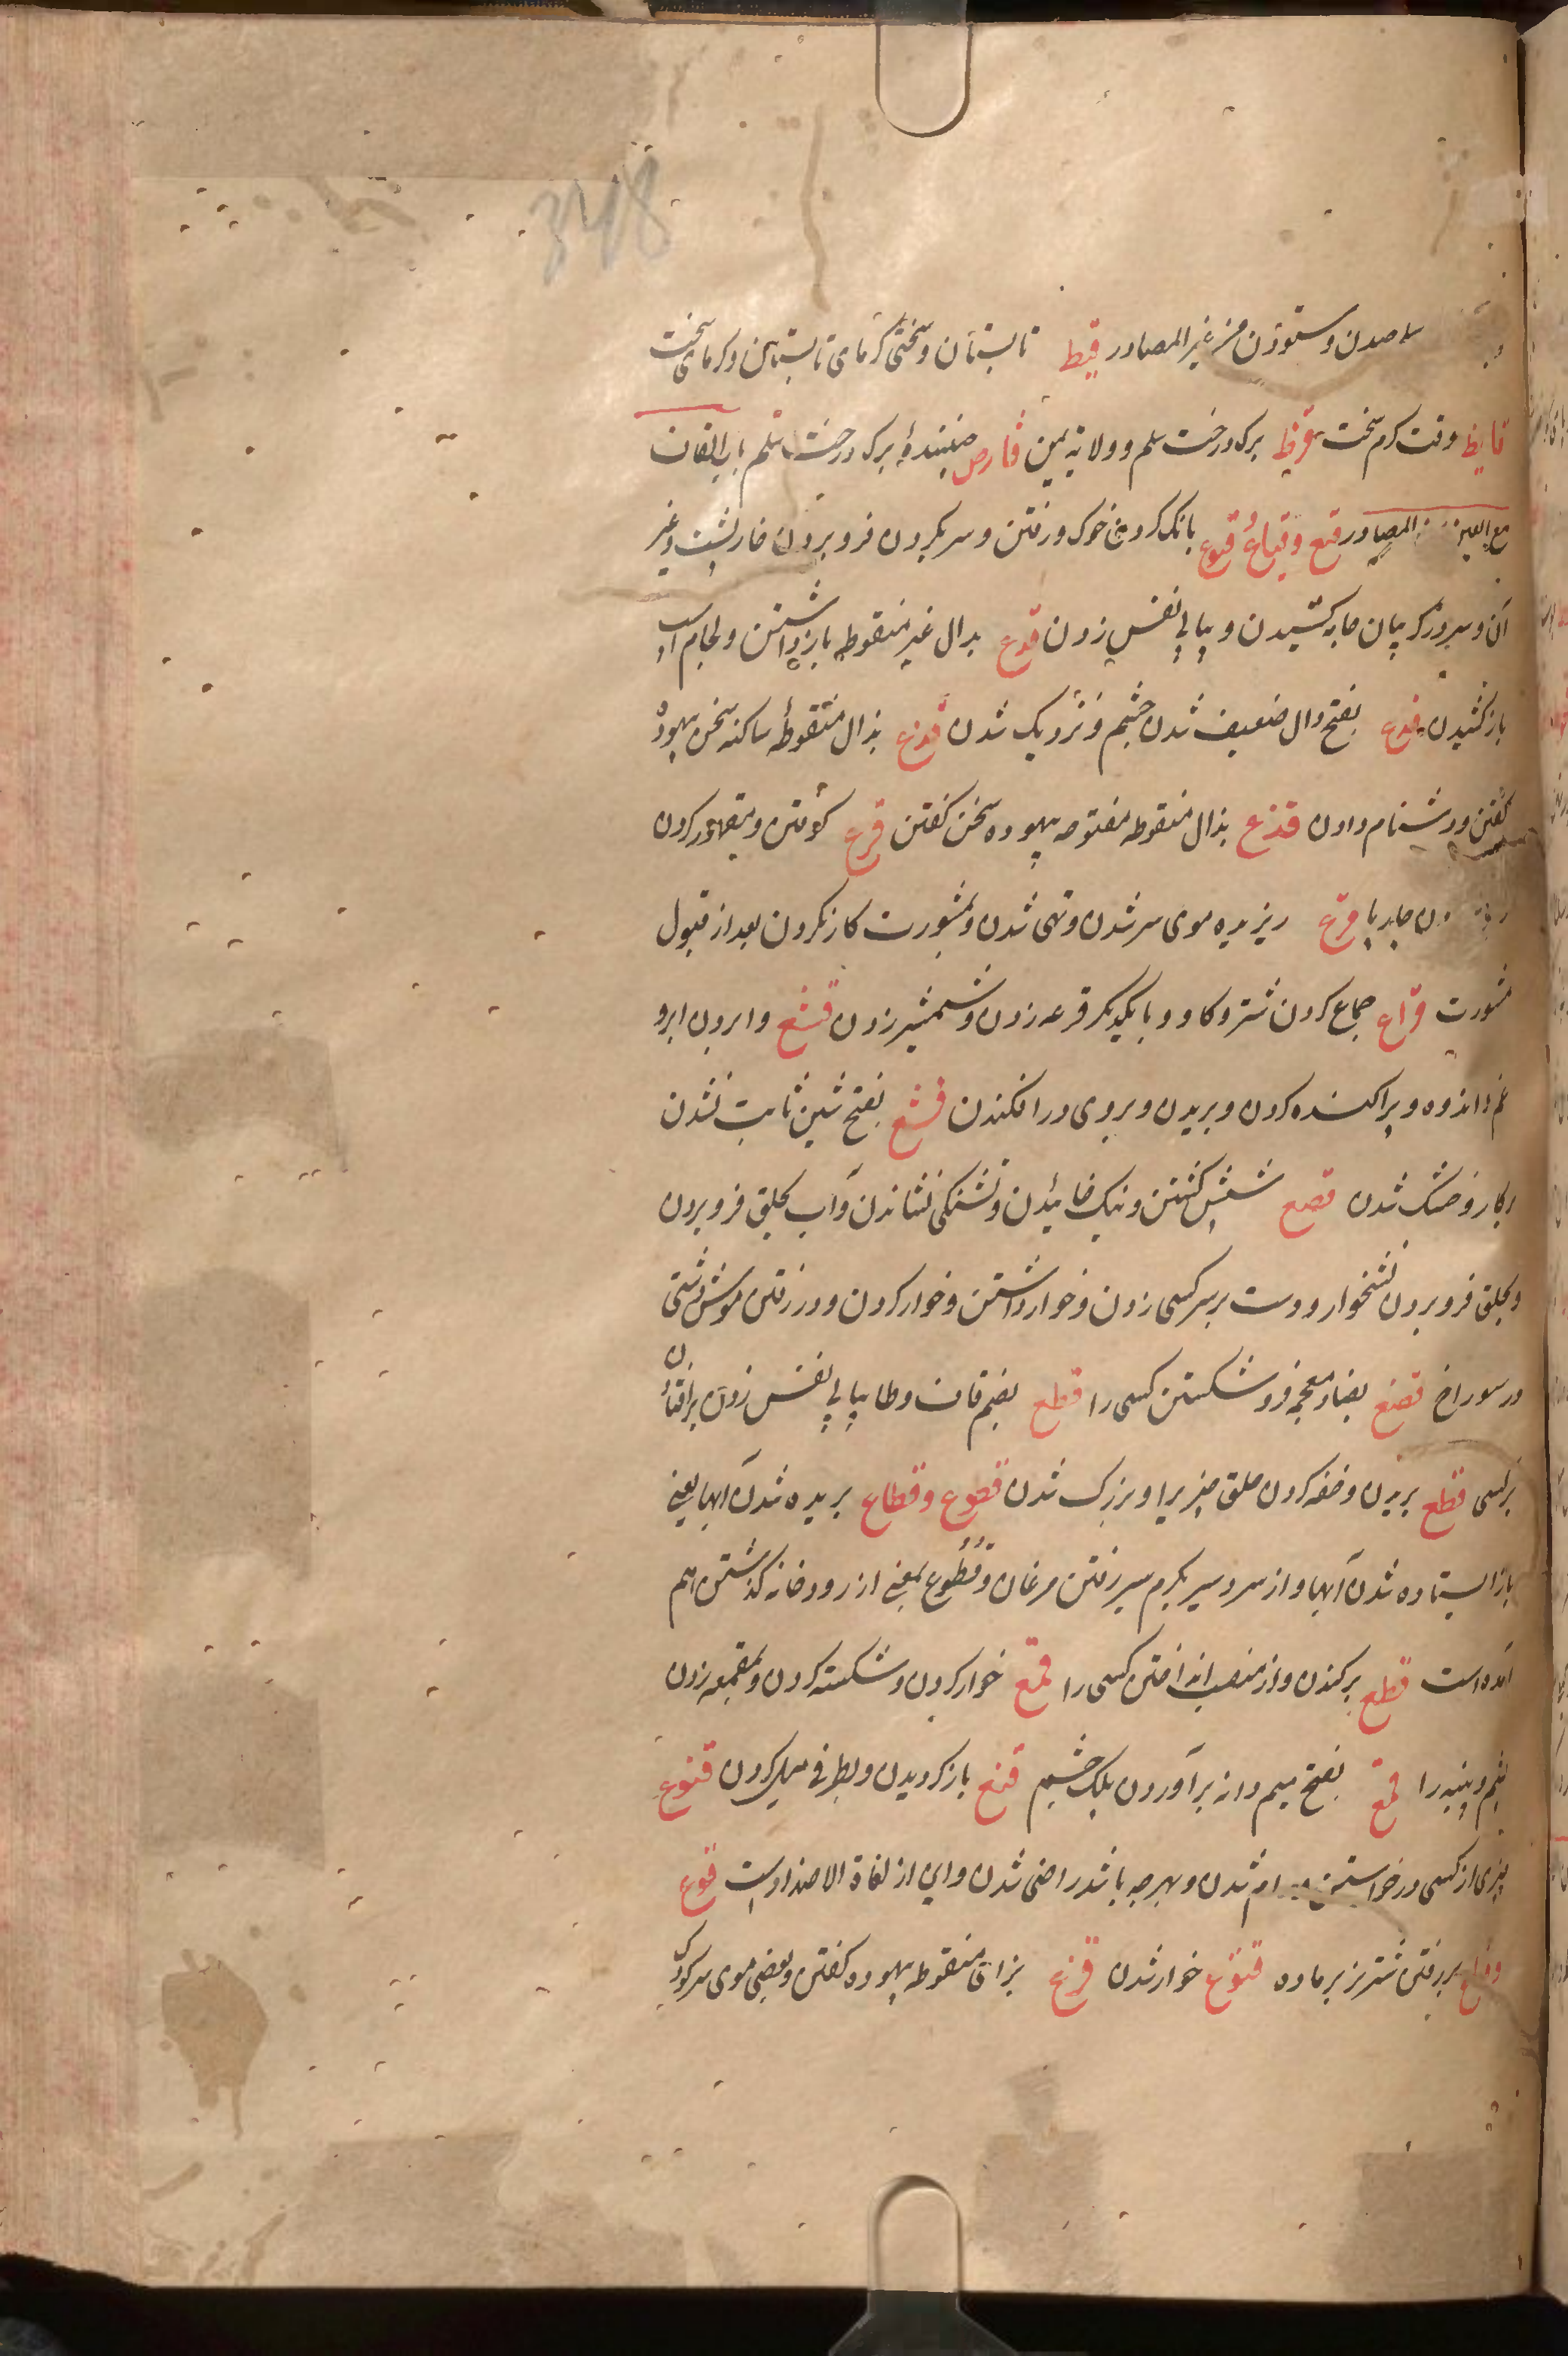 348
و ستودن من غیر المصادر قیظ تابستان و سختی کرمای تابستان و کرمای سخت
قایظ وقت کرم سخت قرظ برک درخت سلم و ولایة یمن قارص چینندهٔ برک درخت سلم باب القاف
مع العین المصادر قبع و قباع قبوع بانک کردن خوک و رفتن و سر بکردن فرو بردن خارپشت و غیر
آن و سر در کریبان جامه کشیدن و پیاپی نفس زدن قدع بدال غیر منقوطه باز داشتن و لجام اسب
باز کشیدن قدع بفتح دال ضعیف شدن چشم و نزدیک شدن قذع بذال منقوطه ساکنه سخن بیهوده
کفتن و دشنام دادن قذع بذال منقوطه مفتوحه بیهوده سخن کفتن قرع کوفتن و مقهور کردن
قرع ریزیده موی سر شدن و تهی شدن و بمشورت کار نکردن بعد از قبول
مشورت قراع جماع کردن شتر و کاو و با یکدیکر قرعه زدن و شمشیر زدن قشع وا بردن ابر و
غم و اندوه و پراکنده کردن و بریدن و بروی در افکندن قشع بفتح شین ثابت نشدن
بکار و خشک شدن قصع شپش کشتن و نیک خائیدن و تشنکی نشاندن و آب بحلق فرو بردن
و بحلق فرو بردن نشخوار و دست بر سر کسی زدن و خوار داشتن و خوار کردن و در رفتن موش دشتی
در سوراخ قضع بضاد معجمه فرو شکستن کسی را قطع بضم قاف و طا پیاپی نفس زدن بر افتادن
بر کسی قطع بریدن و خفه کردن حلق چیزیرا و بزرک شدن قطوع و قطاع بریده شدن آبها یعنی
باز ایستاده شدن آبها و از سردسیر بکرم سیر رفتن مرغان و قطوع بمعنی از رودخانه کذشتن هم
آمده است قطع برکندن و از منصب انداختن کسی را قمع خوار کردن و شکسته کردن و بمقمعه زدن
پشم و پنبه را قمع بفتح میم دانه بر آوردن پلک چشم قنع باز کردیدن و بطرفی میل کردن قنوع
چیزی از کسی در خواستن شدن و بهرچه باشد راضی شدن و این از لغاة الاضداد است قوع
و قیاع بر رفتن شتر نر بر ماده قنوع خوار شدن قزع بزای منقوطه بیهوده کفتن و بعضی موی سر کودک